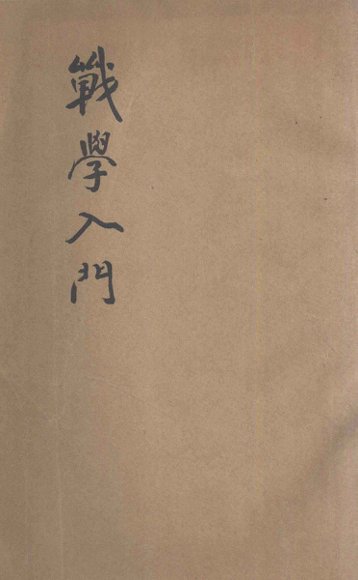 戰學入門